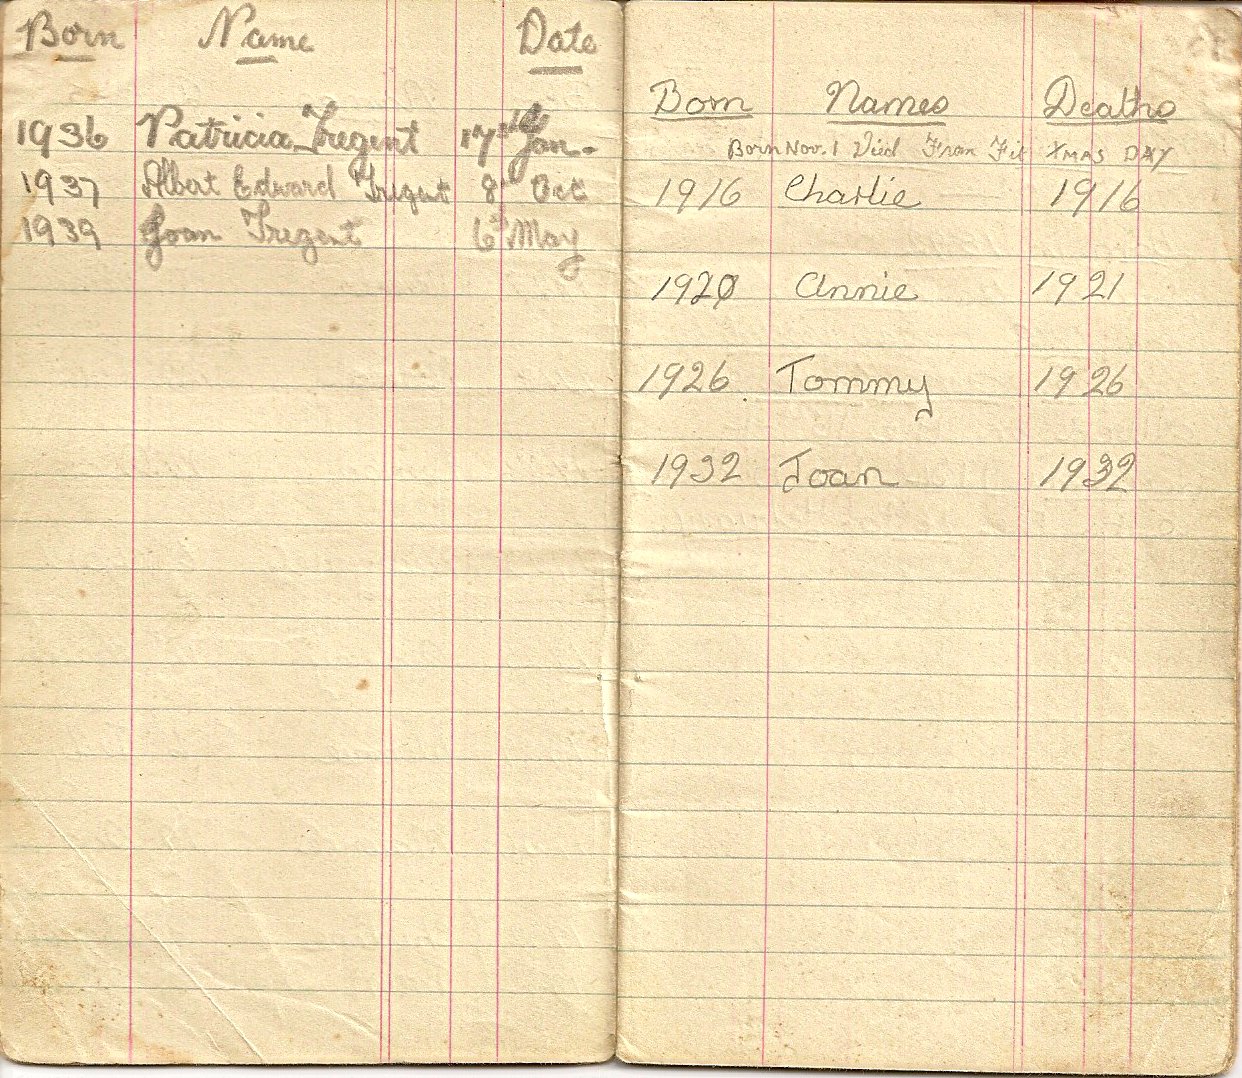 Born Name Date
1936 Patricia Tregent 17th Jan.
1937 Albert Edward Tregent 8th Oct
1939 Joan Tregent 6th May
Born Names Deaths
Born Nov. 1 Died From Fit XMAS DAY
1916 Charlie 1916
1920 Annie 1921
1926 Tommy 1926
1932 Joan 1932